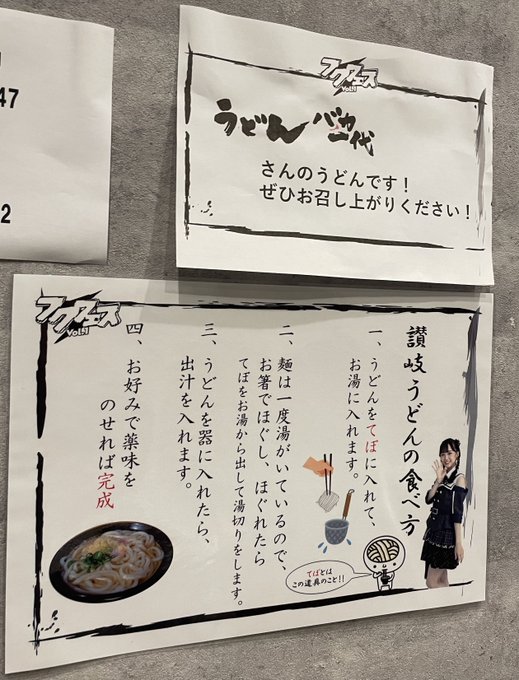 47
2
フクフェス
Vol.1
うどん バカ一代
さんのうどんです！
ぜひお召し上がりください！
フクフェス
Vol.1
讃岐うどんの食べ方
一、うどんをてぼに入れて、
お湯に入れます。
二、麺は一度湯がいているので、
お箸でほぐし、ほぐれたら
てぼをお湯から出して湯切りをします。
三、うどんを器に入れたら、
出汁を入れます。
四、お好みで薬味を
のせれば完成
てぼとは
この道具のこと!!